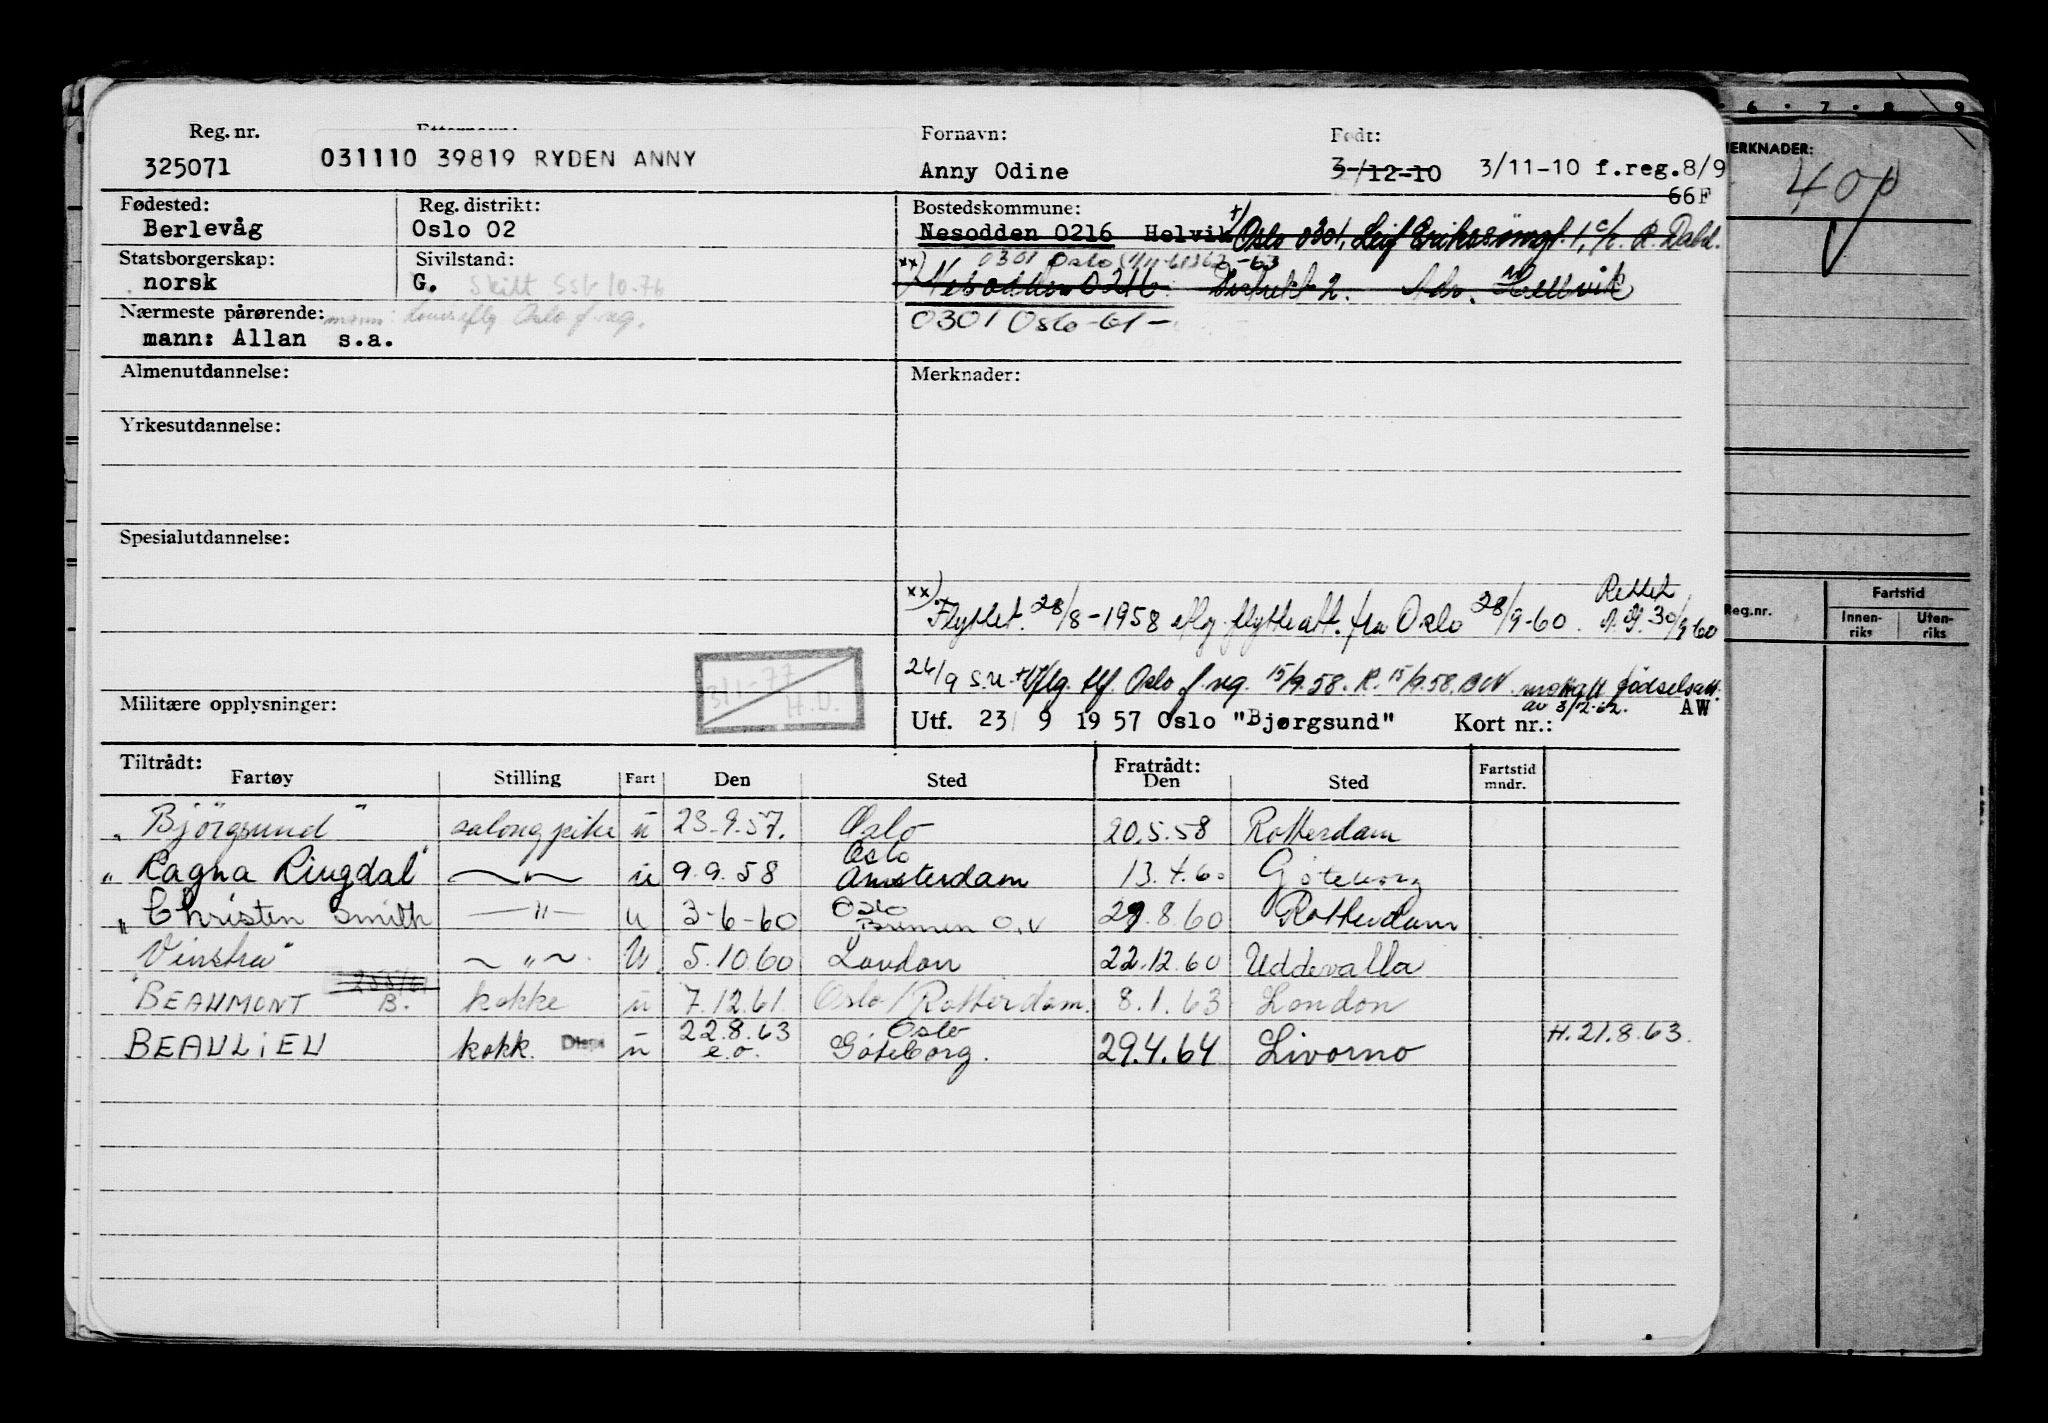 Reg. nr.
325071
031110 39819 RYDEN ANNY
Fornavn:
Anny Odine
Født:
3/12-10 3/11-10 f.reg.8/9
66F
Fødested:
Berlevåg
Reg. distrikt:
Oslo 02
Bostedskommune:
Nesodden 0216 Helvik +) Oslo 0301, Leif Erikssønsgt. 1, c/o
Statsborgerskap:
norsk
Sivilstand:
G. Skilt SSB 10-76
0301 Oslo -63
xx) Nesodden 0216. Distrikt 2. Adr. Hellvik
0301 Oslo -61-
Nærmeste pårørende:
mann: Oslo f. reg.
mann: Allan s.a.
Almenutdannelse:
Merknader:
Yrkesutdannelse:
Spesialutdannelse:
xx) Flyttet 28/8-1958 iflg. flytteatt. fra Oslo 28/9-60. Rettet
30/9 60
24/9 s.u. +) Iflg. tlf. Oslo f. reg. 15/9.58. R. 15/9.58. mottatt fødselsatt.
av 3/12-62. AW
3/1-77
H.O.
Militære opplysninger:
Utf. 23/ 9 1957 Oslo "Bjørgsund" Kort nr.:
Tiltrådt:
Fartøy Stilling Fart Den Sted
Fratrådt:
Den Sted Fartstid mndr.
"Bjørgsund" salongpike u 23.9.57. Oslo 20.5.58 Rotterdam
"Ragna Ringdal" —"— u 9.9.58 Oslo Amsterdam 13.4.60 Göteborg
"Christen Smith —"— u 3-6-60 Oslo Bremen O.V 29.8.60 Rotterdam
Vinstra" —"— U. 5.10.60 London 22.12.60 Uddevalla
"BEAUMONT B. kokke u 7.12.61 Oslo/Rotterdam. 8.1.63 London
BEAULIEU kokk. Disp. u 22.8.63 e.o. Oslo Göteborg. 29.4.64 Livorno H.21.8.63.
6 . 7 . 8 9
MERKNADER:
40p
Reg.nr.
Fartstid
Innen-riks Uten-riks